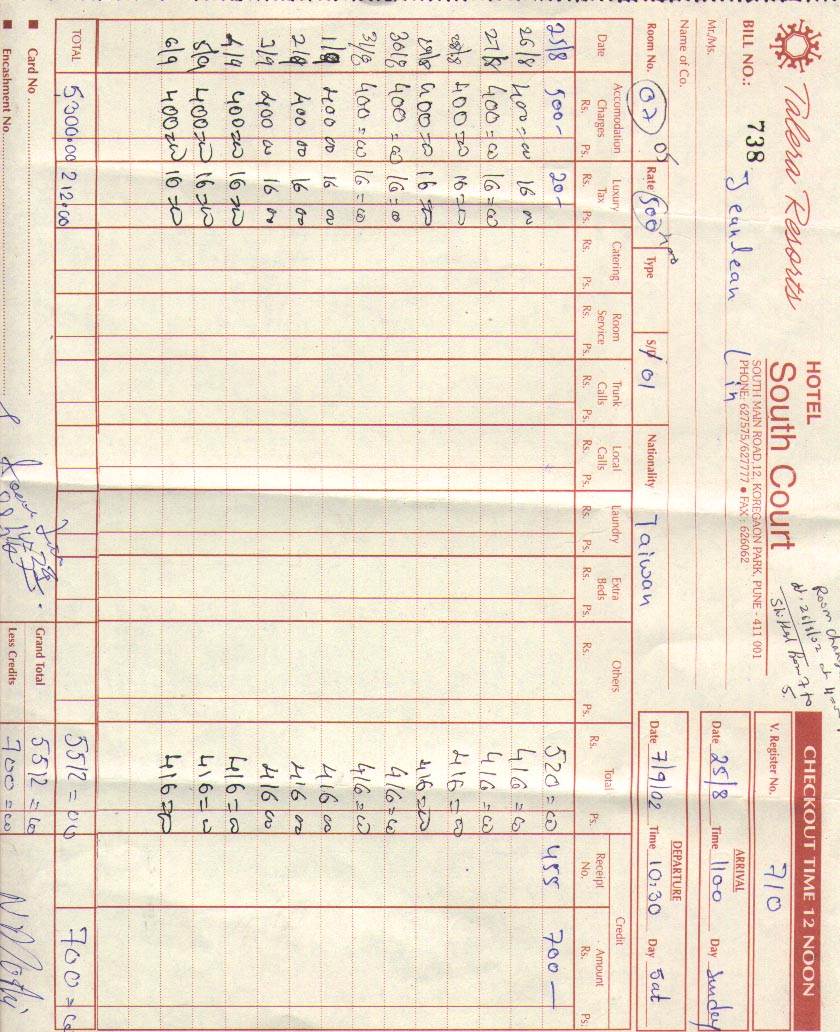 Talera Resorts
HOTEL
South Court
SOUTH MAIN ROAD, 12, KOREGAON PARK, PUNE - 411 001
PHONE: 627575/627777 ● FAX : 626062
Room Chang
dt. 26/8/02 at
Shifted from 7 to
5.
CHECKOUT TIME 12 NOON
BILL NO.: 738
V. Register No. 710
Mr./Ms. Jeanlean Lin
Name of Co.
ARRIVAL
Date 25/8 Time 1100 Day Sunday
DEPARTURE
Date 7/9/02 Time 10:30 Day Sat
Room No. 07 05 Rate 500 400 Type S/D 01 Nationality Taiwan
Date Accomodation Charges Luxury Tax Catering Room Service Trunk Calls Local Calls Laundry Extra Beds Others Total Credit
Receipt No. Amount
Rs. Ps. Rs. Ps. Rs. Ps. Rs. Ps. Rs. Ps. Rs. Ps. Rs. Ps. Rs. Ps. Rs. Ps. Rs. Ps. Rs. Ps.
25/8 500- 20- 520=00 455 700-
26/8 400=00 16 00 416=00
27/8 400=00 16=00 416=00
28/8 400=00 16=00 416=00
29/8 400=00 16=00 416=00
30/8 400=00 16=00 416=00
31/8 400=00 16=00 416=00
1/9 400 00 16 00 416 00
2/9 400 00 16 00 416 00
3/9 400 00 16 00 416 00
4/9 400=00 16=00 416=00
5/9 400=00 16=00 416=00
6/9 400=00 16=00 416=00
TOTAL 5300.00 212.00 5512=00 700=00
■ Card No
Grand Total 5512=00
■ Encashment No.
Less Credits 700=00